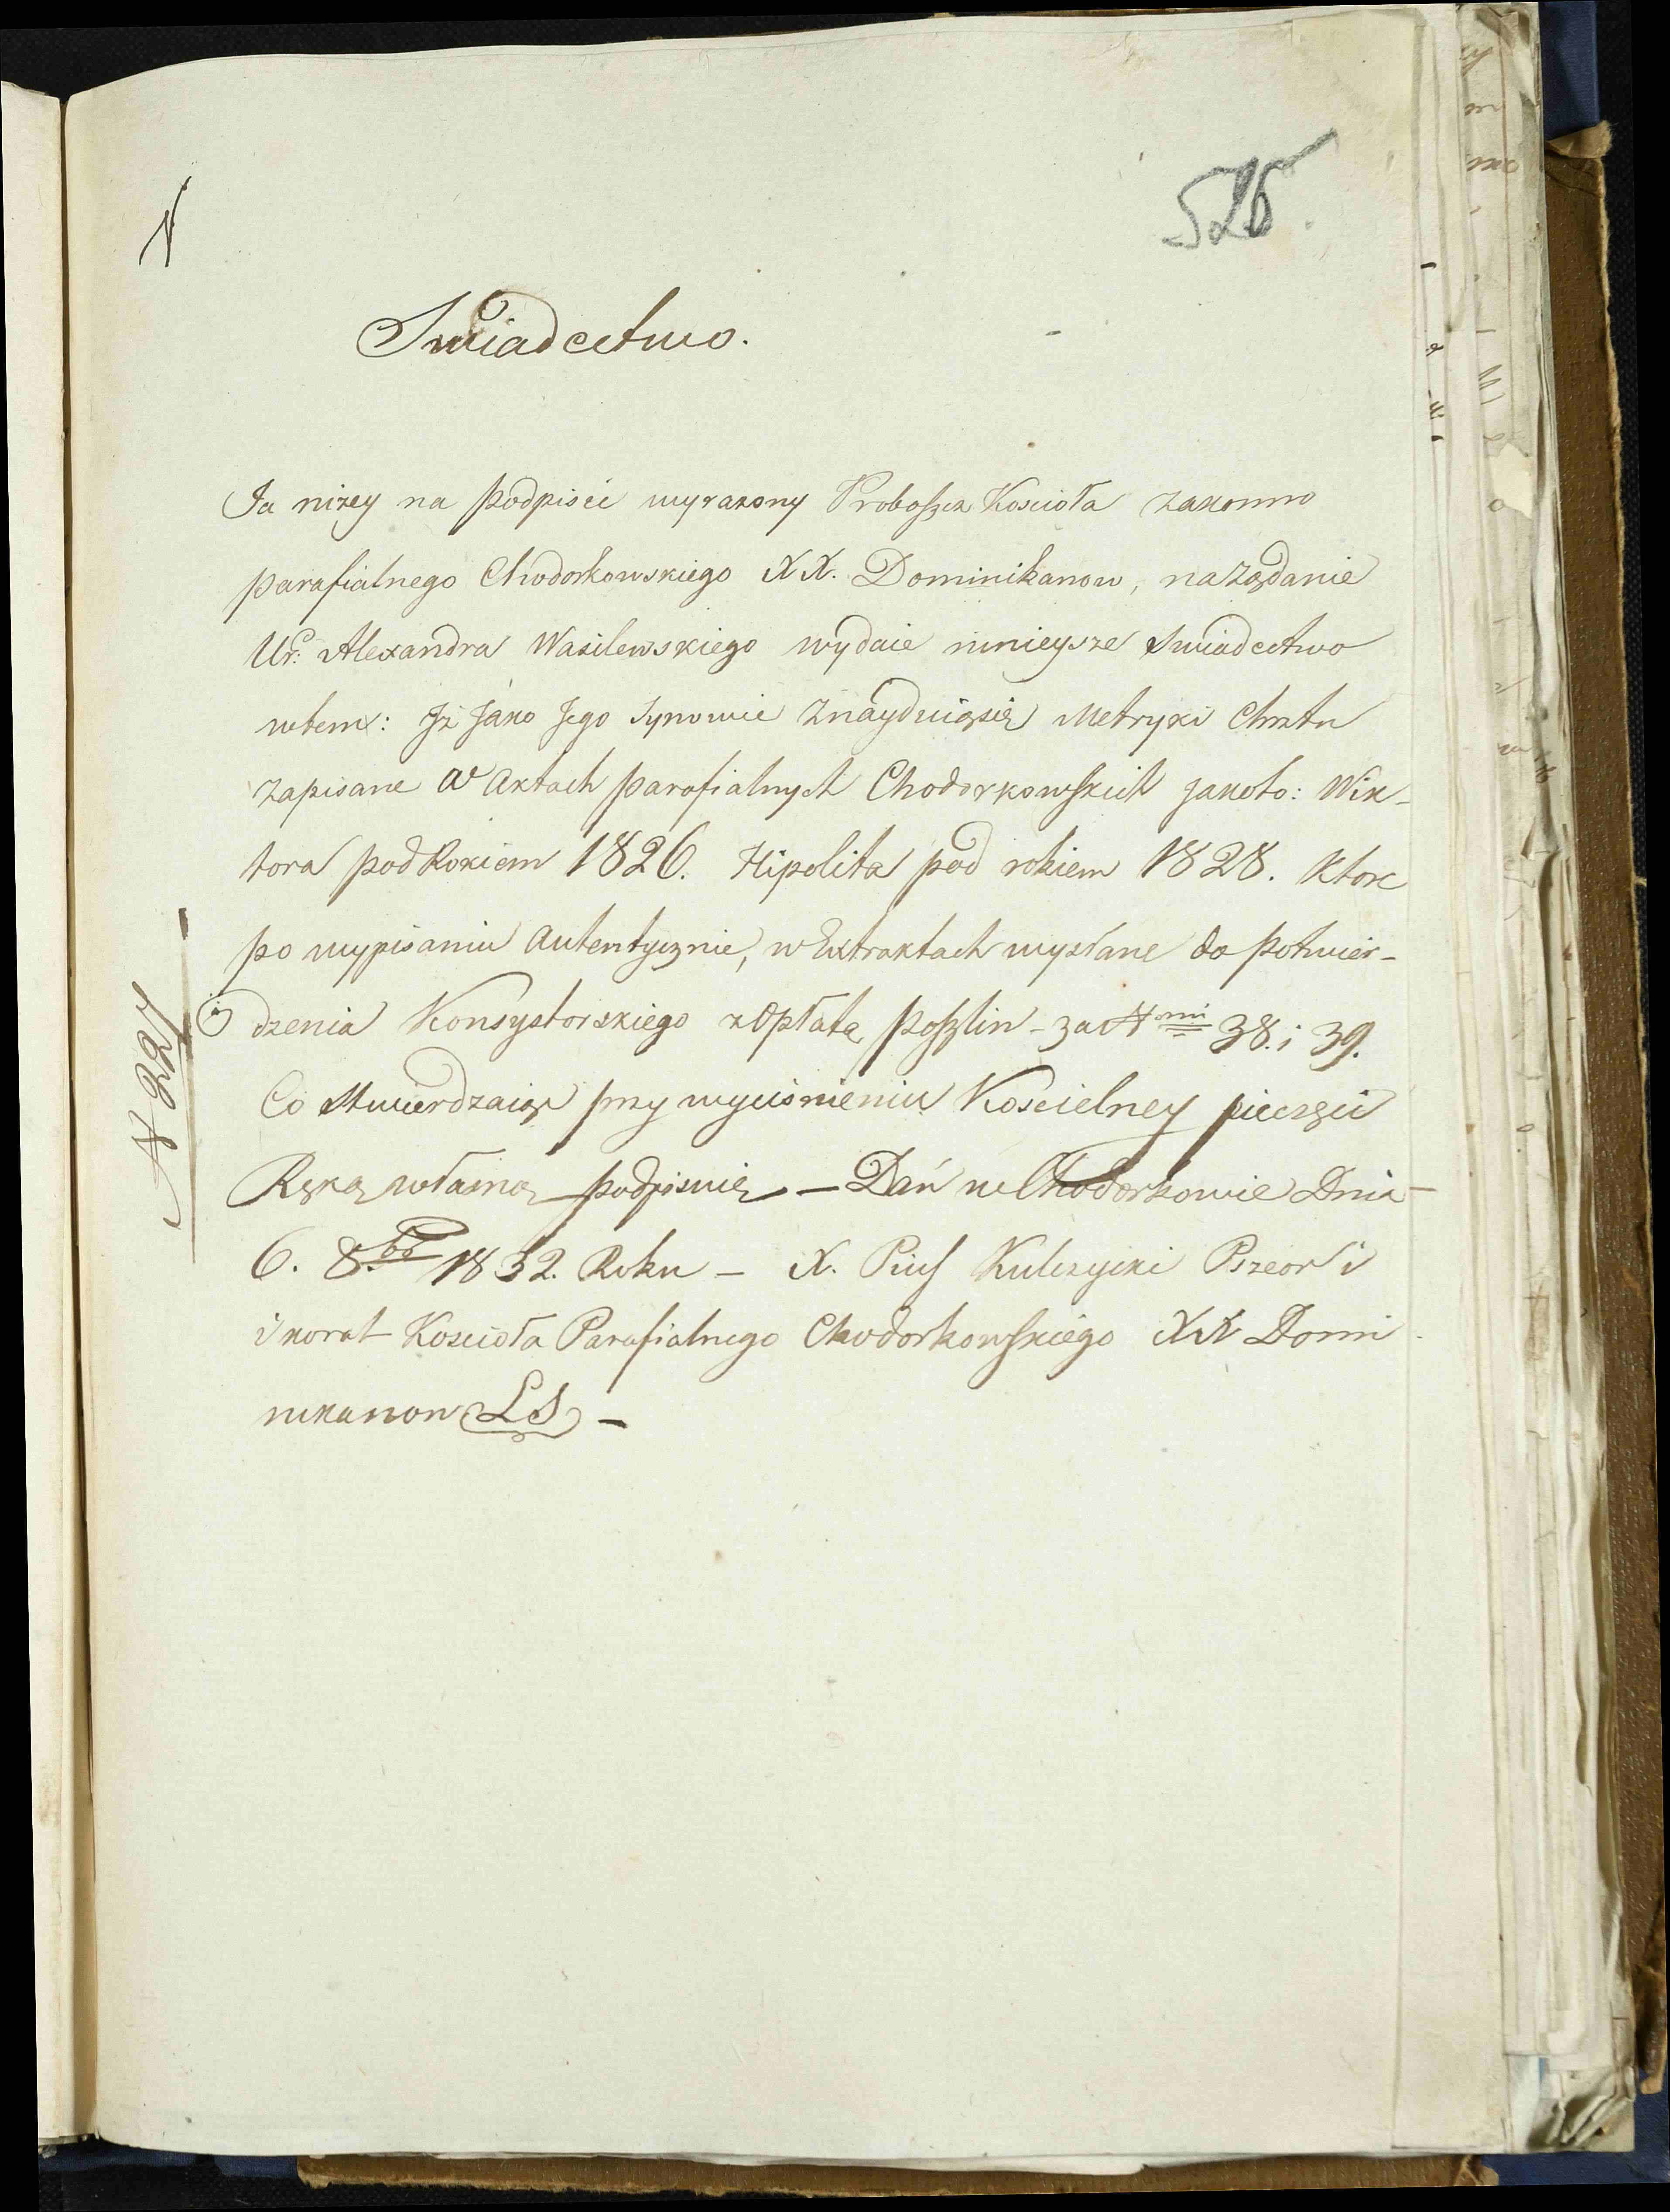 N
526.
Swiadectwo.
Ja niżey na podpisie wyrażony Proboszcz Kościoła zakonno
parafialnego Chodorkowskiego XX. Dominikanow, na żądanie
Ur: Alexandra Wasilewskiego wydaie ninieysze Swiadectwo
wtem: Iż jako Jego Synowie znayduiąsię Metryki Chrztu
zapisane w Aktach parafialnych Chodorkowskich jakoto: Wik-
tora pod Rokiem 1826. Hipolita pod rokiem 1828. Ktore
po wypisaniu Autentycznie, w Extraktach wysłane do potwier-
dzenia Konsystorskiego z Opłatą poszlin - za Nmi 38. i 39.
Co Stwierdzaiąc przy wyciśnieniu Kościelney pieczęci
Ręką własną podpisuię - Dań w Chodorkowie Dnia
6. 8.br 1832. Roku - X. Pius Kulczycki Przeor i
i korat Kościoła Parafialnego Chodorkowskiego XX Domi
nikanow LS -
N 227